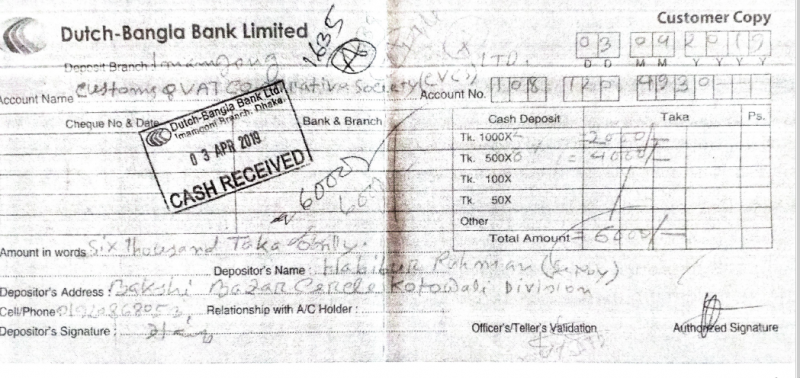 Customer Copy
Dutch-Bangla Bank Limited
1635
LTD.
03 04 2019
D D M M Y Y Y Y
Deposit Branch Imamgonj
Account Name Customs & VAT Co erative Society (CVCS)
Account No. 108 120 4930
Cheque No & Date
Bank & Branch
Dutch-Bangla Bank Ltd.
Imamgonj Branch, Dhaka.
03 APR 2019
CASH RECEIVED
Cash Deposit Taka Ps.
Tk. 1000X2 = 2000/-
Tk. 500X8 = 4000/-
Tk. 100X
Tk. 50X
Other
Total Amount = 6000/-
6000/
Amount in words Six Thousand Taka only.
Depositor's Name : Habibur Rahman
Depositor's Address : Bakshi Bazar Circle Kotowali Division
Cell/Phone
Relationship with A/C Holder :
Depositor's Signature :
Officer's/Teller's Validation
Authorized Signature